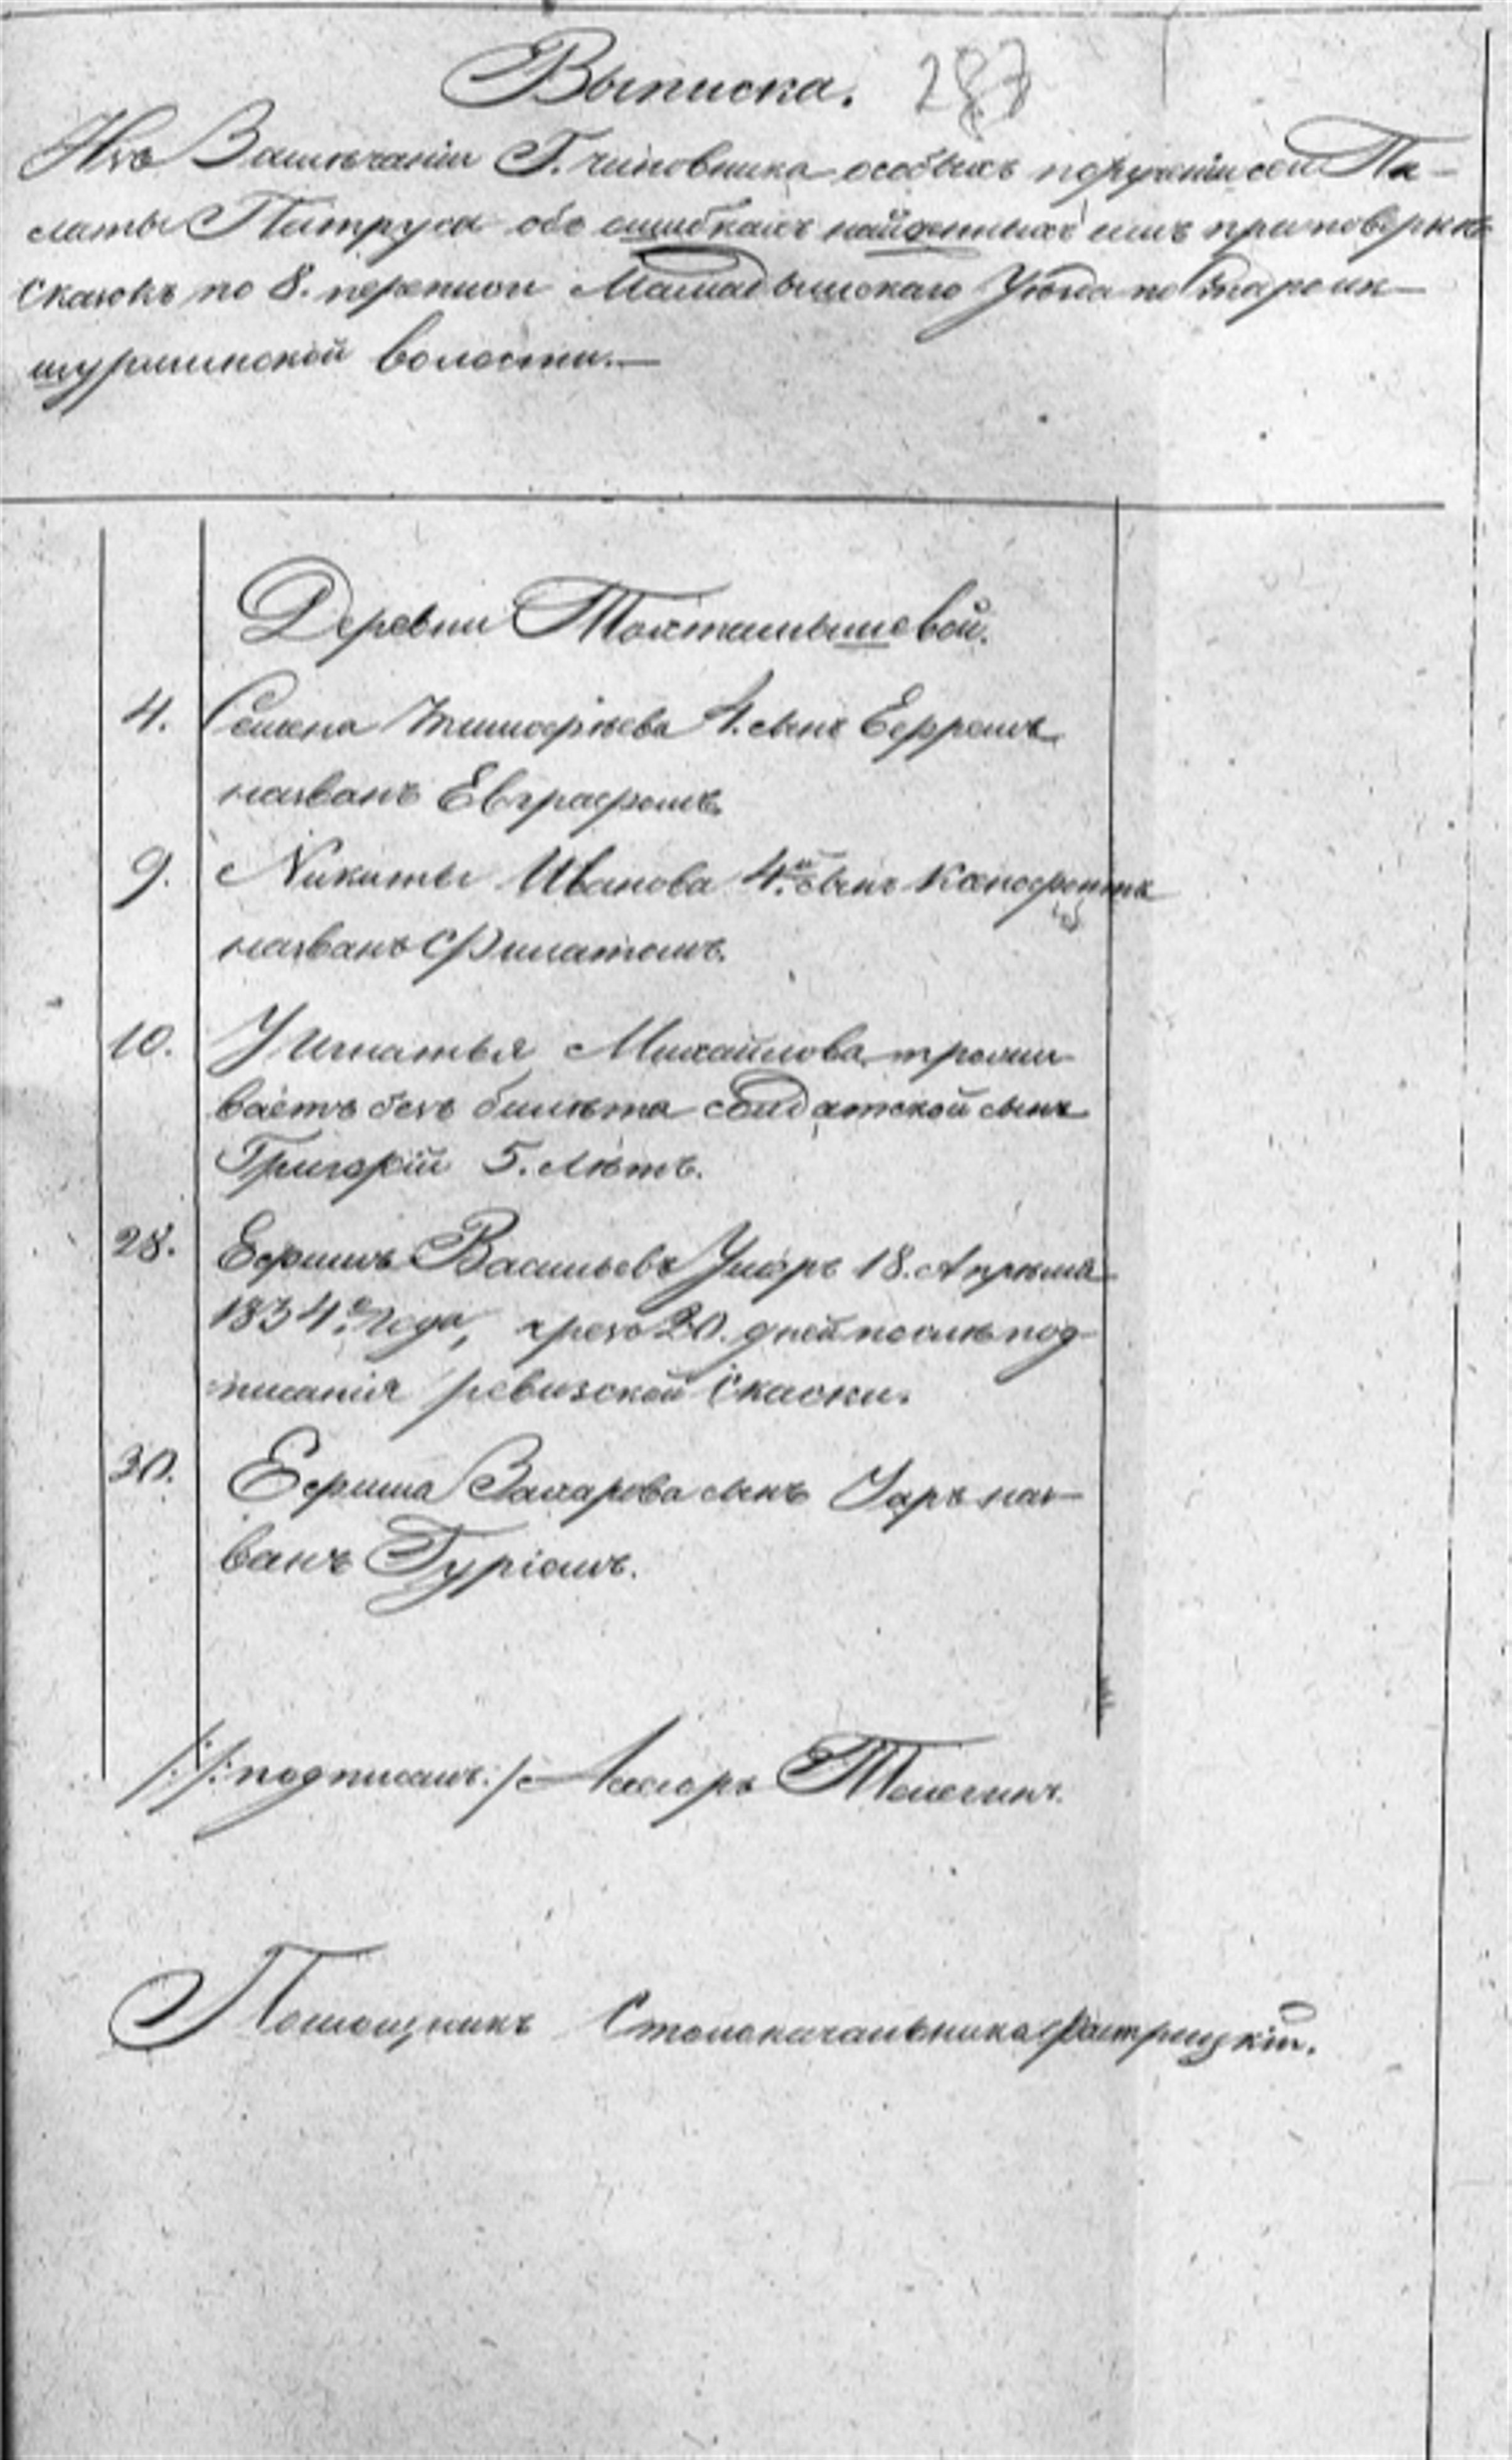 Выписка. 287
Изъ Замѣчанiи Г. чиновника особыхъ порученiи сей Па-
латы Петруса объ ошибкахъ найденныхъ имъ при повѣркѣ
Сказокъ по 8. переписи Мамадышскаго Уѣзда по Староик-
шурминской волости.—
Деревни Тохтамышевой.
4. Семена Тимофѣева 4. сынъ Ефремъ
названъ Евграфомъ.
9. Никиты Иванова 4.й сынъ Ксенофонтъ
названъ Филатомъ.
10. У Игнатья Михайлова прожи
ваетъ безъ билета солдатской сынъ
Григорiй 5. лѣтъ.
28. Ефимъ Васильевъ Умеръ 18. Апрѣля
1834.го года, чрезъ 20. дней послѣ под-
писанiя ревизской Скаски.
30. Ефима Захарова сынъ Уаръ наз-
ванъ Гурiомъ.
/:/:подписалъ:/ Асесоръ
Помощникъ Столоначальника